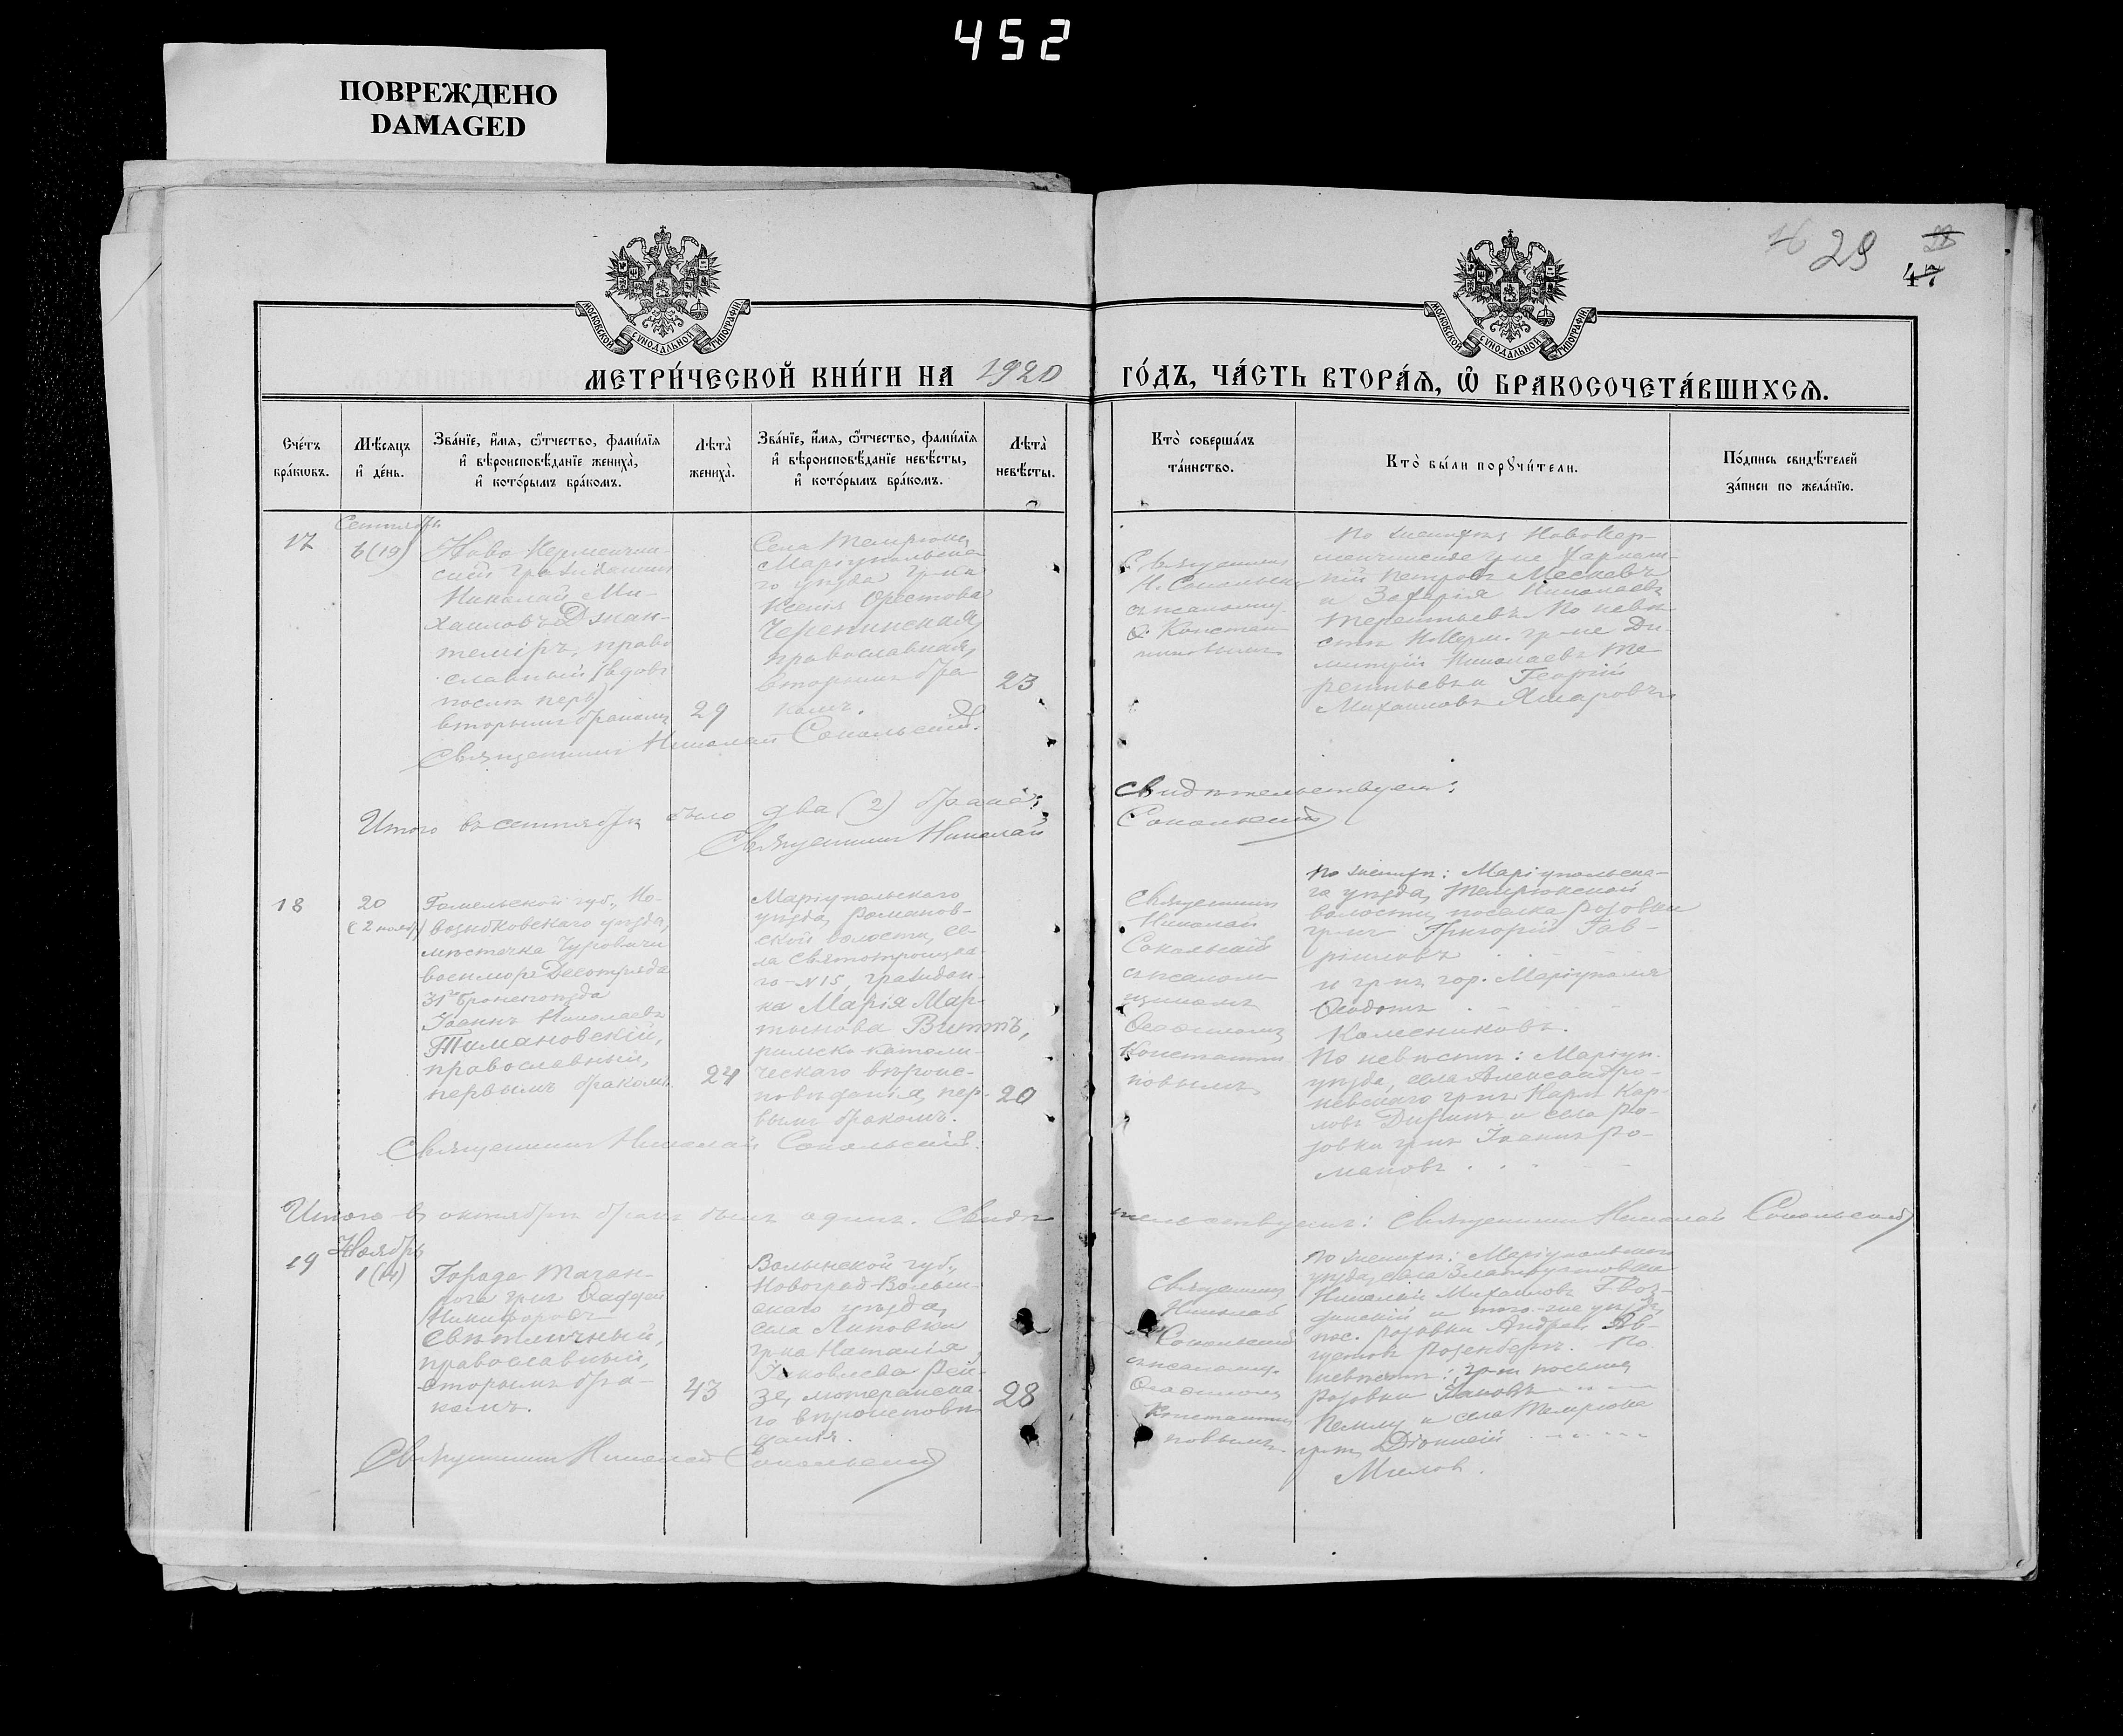 452
ПОВРЕЖДЕНО
DAMAGED
29
47
МОСКОВСКОЙ СѴНОДАЛЬНОЙ ТИПОГРАФІИ
МОСКОВСКОЙ СѴНОДАЛЬНОЙ ТИПОГРАФІИ
МЕТРИ́ЧЕСКОЙ КНИ́ГИ НА 1920 ГО́ДЪ, ЧА́СТЬ ВТОРА́Ѧ, Ѡ҆ БРАКОСОЧЕТА́ВШИХСѦ.
Сче́тъ
бра́кѡвъ.
Мѣ́сѧцъ
и҆ де́нь.
Зва́нїе, и҆́мѧ, ѻ҆́тчество, фами́лїѧ
и҆ вѣроисповѣ́данїе жениха̀,
и҆ кото́рымъ бра́комъ.
Лѣта̀
жениха̀.
Зва́нїе, и҆́мѧ, ѻ҆́тчество, фами́лїѧ
и҆ вѣроисповѣ́данїе невѣ́сты,
и҆ кото́рымъ бра́комъ.
Лѣта̀
невѣ́сты.
Кто̀ соверша́лъ
та́инство.
Кто̀ бы́ли порꙋчи́тели.
По́дпись свидѣ́телей
за́писи по жела́нїю.
17
Сентябрь
6 (19)
Ново-Керменчик-
скій гражданинъ
Николай Ми-
хаиловъ Джан-
теміръ, право
славный (вдовъ
послѣ перв)
вторымъ бракомъ
29
Села Темрюка
Маріупольска
го уѣзда гр-ка
Ксенія Орестова
православная,
вторымъ бра
комъ.
23
Священникъ
Н. Сокольск
съ псаломщ.
Ѳ. Констан
тиновымъ
По женихѣ Новокер-
менчикскіе гр-не
Петровъ
и Захарія Николаевъ
Терентьевъ. По невѣ
стѣ гр-не Ди-
митрій Николаевъ Те
рентьевъ и Георгій
Михаиловъ
Священникъ Николай Сокольскій.
Итого въ сентябрѣ было два (2) брака.
свидѣтельствуемъ:
Священникъ Николай
Сокольскій
18
20
(2 нояб)
Гомельской губ., Но-
возыбковскаго уѣзда,
мѣстечка Чуровичи
военморъ Десотряда
31го бронепоѣзда
Іоаннъ Николаевъ
Тимановскій,
православный,
первымъ бракомъ.
24
Маріупольскаго
уѣзда, Романов-
ской волости, се-
ла Святотроицка
го № 15, граждан-
ка Марія Мар-
тынова Виттъ,
римско-католи-
ческаго вѣроис-
повѣданія, пер-
вымъ бракомъ.
20
Священникъ
Николай
Сокольскій
съ псалом-
щикомъ
Константи-
новымъ
По женихѣ: Маріупольска-
го уѣзда, Темрюкской
волости, поселка Розовки
гр-нъ Григорій Гав-
риловъ
и гр-нъ гор. Маріуполя
Ѳеодотъ
Колесниковъ.
По невѣстѣ: Маріуп.
уѣзда, села Александро-
невскаго гр-нъ Карлъ Кар-
ловъ и села Ро-
зовки гр-нъ Іоаннъ Ро-
мановъ
Священникъ Николай Сокольскій.
Итого въ октябрѣ бракъ былъ одинъ. Свидѣ
тельствуемъ: Священникъ Николай Сокольскій
19
Ноябрь
1 (14)
Города Таган-
рога гр-нъ Ѳаддей
Никифоровъ
Свѣтличный,
православный,
вторымъ бра-
комъ.
43
Волынской губ.,
Новоград-Волын-
скаго уѣзда,
села Липовки
гр-ка Наталія
Яковлева Рей-
зе, лютеранска-
го вѣроисповѣ
данія.
28
Священникъ
Николай
Сокольскій
съ псаломщ.
Константи
новымъ
По женихѣ: Маріупольскаго
уѣзда, села Златоустовки
Николай Михаиловъ Гвоз-
динскій и того-же уѣзда,
пос. Розовки Андрей Ав-
густовъ Розенбергъ. По
невѣстѣ: гр-нъ поселка
Розовки
и села Темрюка
гр-нъ Діонисій
Священникъ Николай Сокольскій